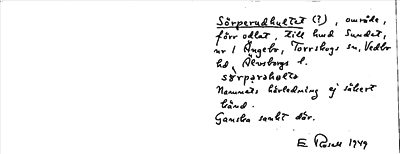 Sörperudhultet (?), område,
förr odlat, till hmd Sundet,
nr 1 Ängebr, Torrskogs sn, Vedbo
hd, Älvsborgs l.
sörpərəhultə
Namnets härledning ej säkert
känd.
Ganska sankt där.
E Rosell 1949